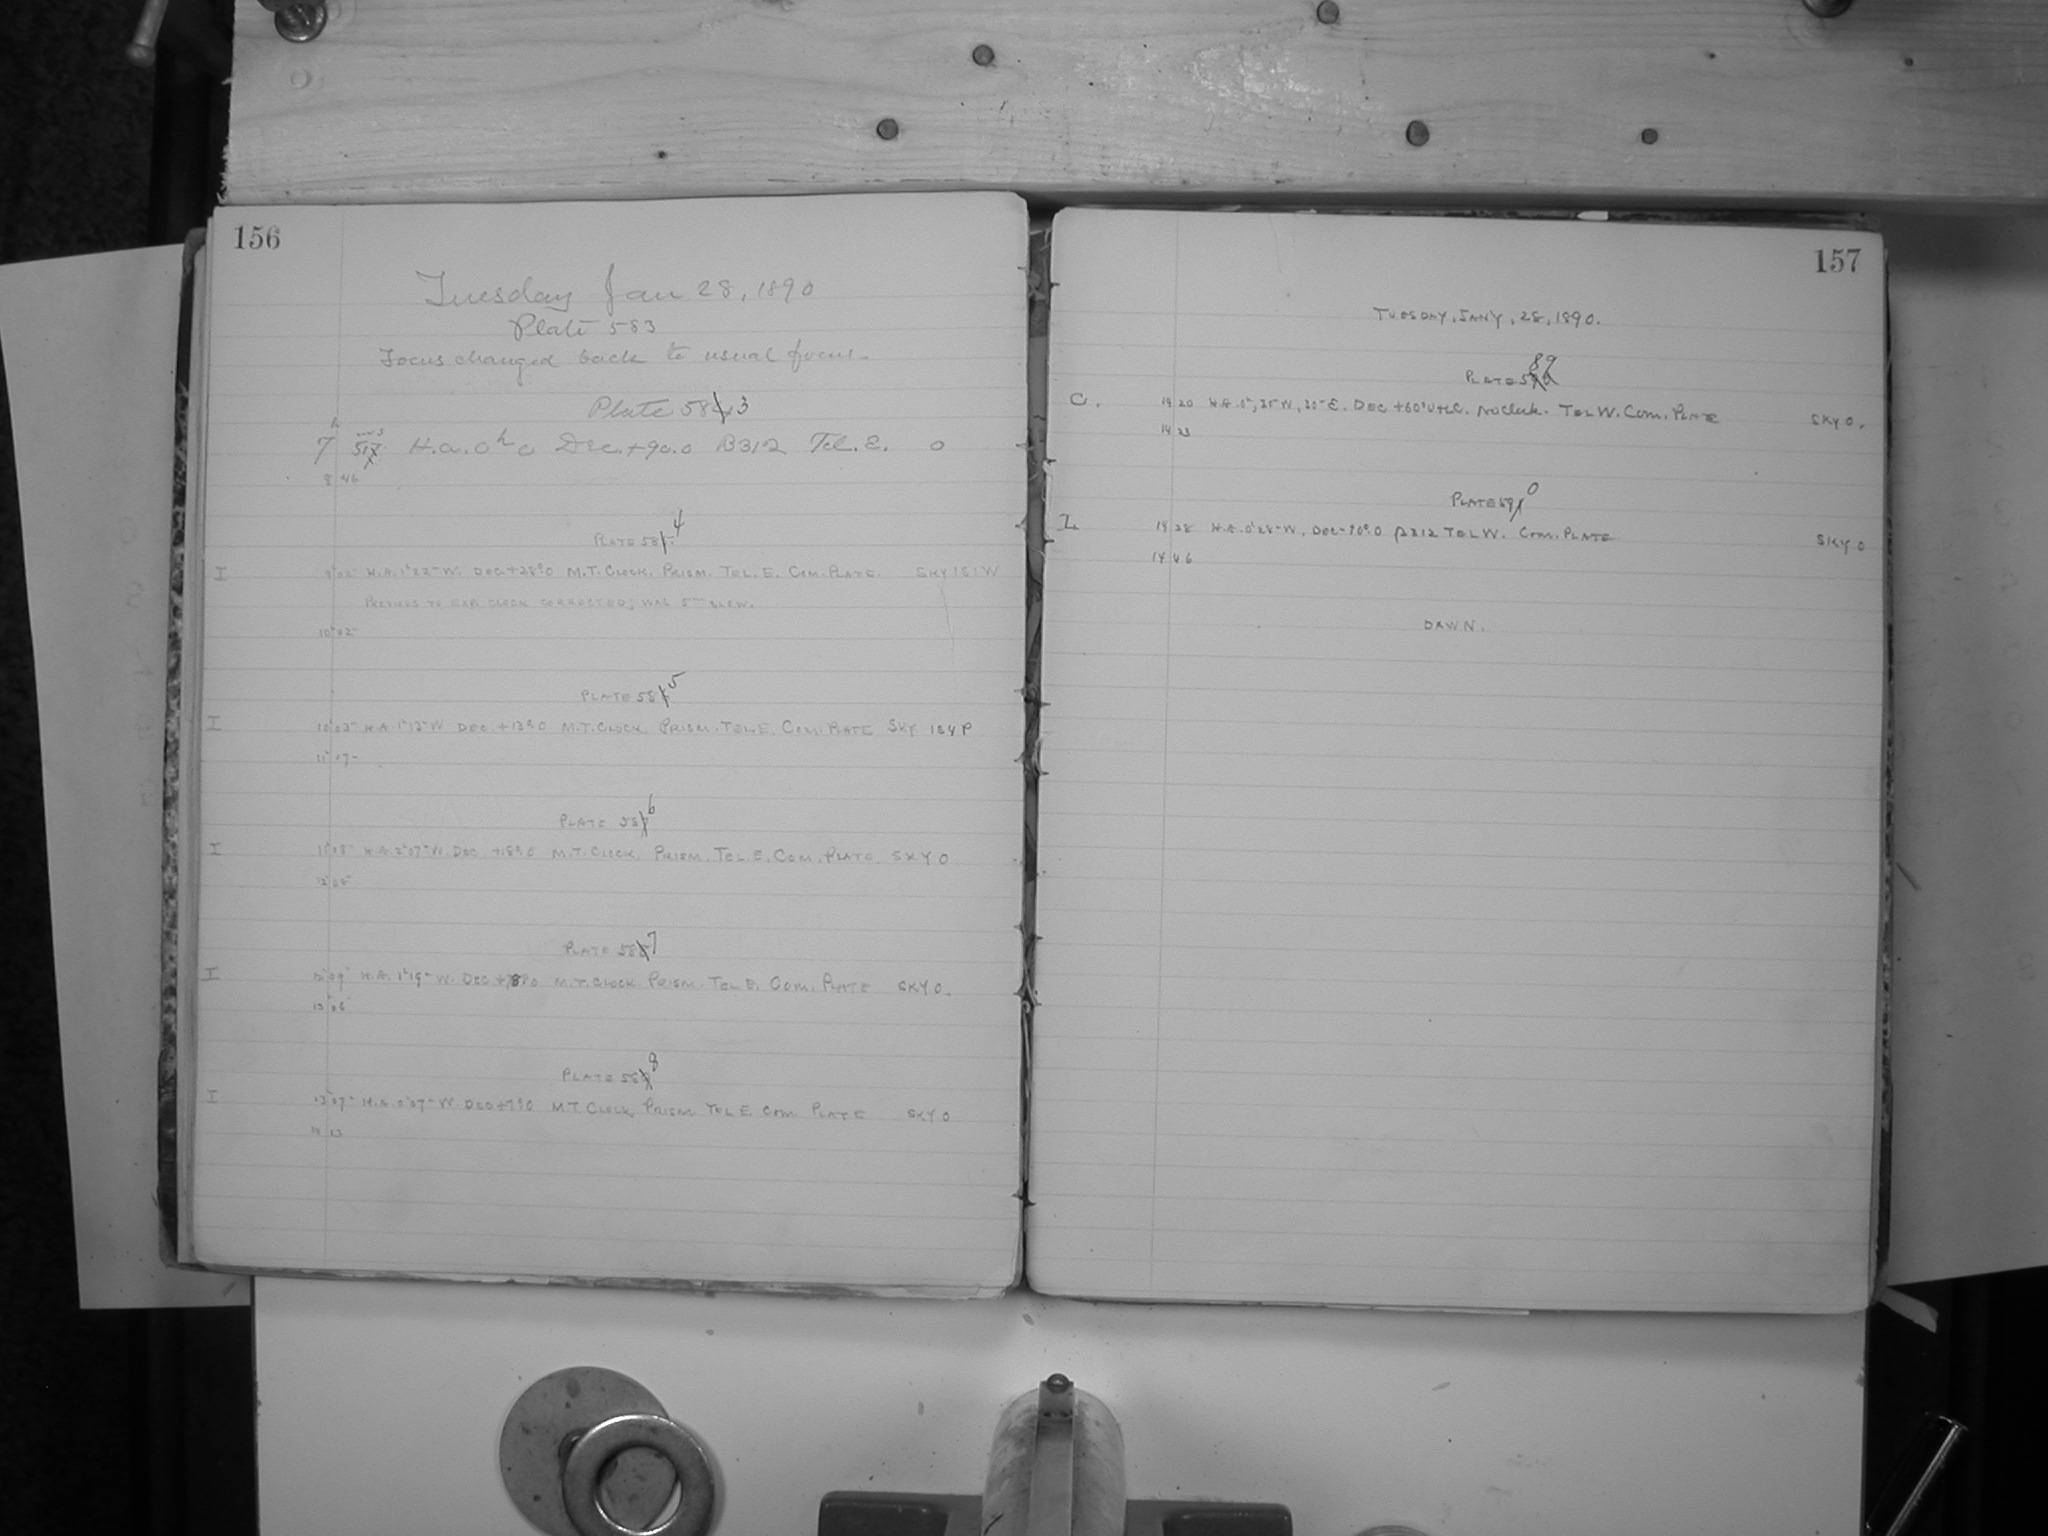 156
Tuesday Jan 28, 1890
Plate 583
Focus changed back to usual focus
Plate 583
7h H.A. 0h 0 Dec. +90.0 B312 Tel. E. 0
8 46
PLATE 584
I 9 02 H.A. 1 22 W. DEC. +28°.0 M.T. CLOCK. PRISM. TEL. E. COM. PLATE. SKY 181W
PREVIOUS TO EXP. CLOCK CORRECTED; WAS 5m SLOW.
10 02
PLATE 585
I 10 03 H.A. 1 13 W DEC. +13°.0 M.T. CLOCK. PRISM. TEL. E. COM. PLATE SKY 184P
11 07
PLATE 586
I 11 08 H.A. 2 07 W. DEC. +18°.0 M.T. CLOCK. PRISM. TEL. E. COM. PLATE. SKY 0
12 08
PLATE 587
I 12 09 H.A. 1 19 W. DEC. M.T. CLOCK. PRISM. TEL E. COM. PLATE SKY 0.
13 06
PLATE 588
I 13 07 H.A. 0 07 W. DEC. M.T. CLOCK. PRISM. TEL E. COM. PLATE SKY 0
14 13
157
TUESDAY, JAN'Y, 28, 1890.
PLATE 589
C. 14 20 H.A. 0h, 30 E. DEC +60° No Clock. TEL W. COM. PLATE SKY 0.
14 23
PLATE 590
I. 14 28 H.A. 0 28 W, DEC 90°.0 B312 TEL W. COM. PLATE SKY 0
14 46
DAWN.